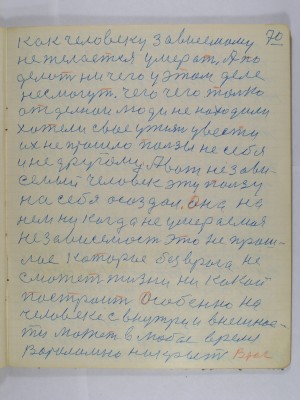 70
как человеку зависемому
не желается умерат, А по
делат ни чего у этом деле
не смогут, чего чего только
от делной люди не находили
хотели свае ужин увести
их не прошло ползы не себя
и не другому. А вот не зави-
семый человек эту ползу
на себя осоздал. она на
нем ни когда не умераемая
независемост это не прош-
лае которае без врага не
сможет жизни ни какой
построит Особенно на
человеке с внутри и внешнос-
ти может в любое время